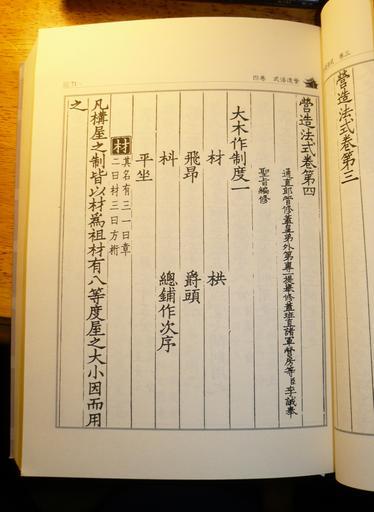 卷三
營造法式卷第三
營造法式 卷四
71
營造法式卷第四
通直郎管修蓋皇弟外第專一提舉修蓋班直諸軍營房等臣李誡奉
聖旨編修
大木作制度一
材 栱
飛昂 爵頭
枓 總鋪作次序
平坐
材 其名有三一曰章
二曰材三曰方桁
凡構屋之制皆以材爲祖材有八等度屋之大小因而用
之